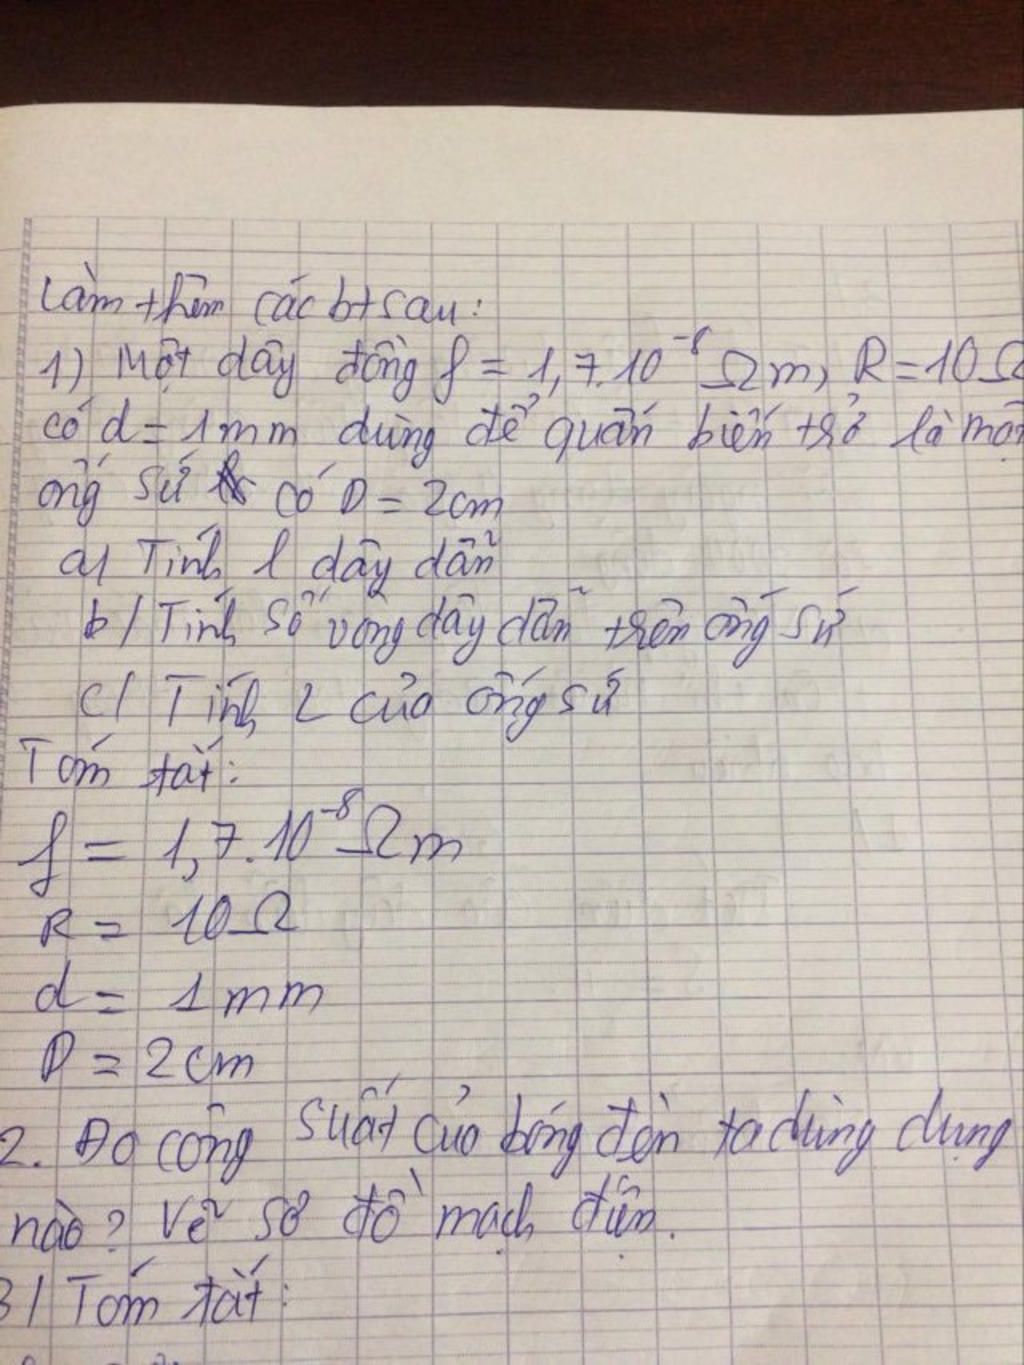 Làm thêm các bt sau:
1) Một dây đồng ρ = 1,7.10⁻⁸ Ωm, R = 10Ω
có d = 1mm dùng để quấn biến trở là một
ống sứ có D = 2cm
a/ Tính l dây dẫn
b/ Tính số vòng dây dẫn trên ống sứ
c/ Tính l của ống sứ
Tóm tắt:
ρ = 1,7.10⁻⁸ Ωm
R = 10Ω
d = 1mm
D = 2cm
2. Đo công suất của bóng đèn ta dùng dụng
nào? Vẽ sơ đồ mạch điện.
3/ Tóm tắt: